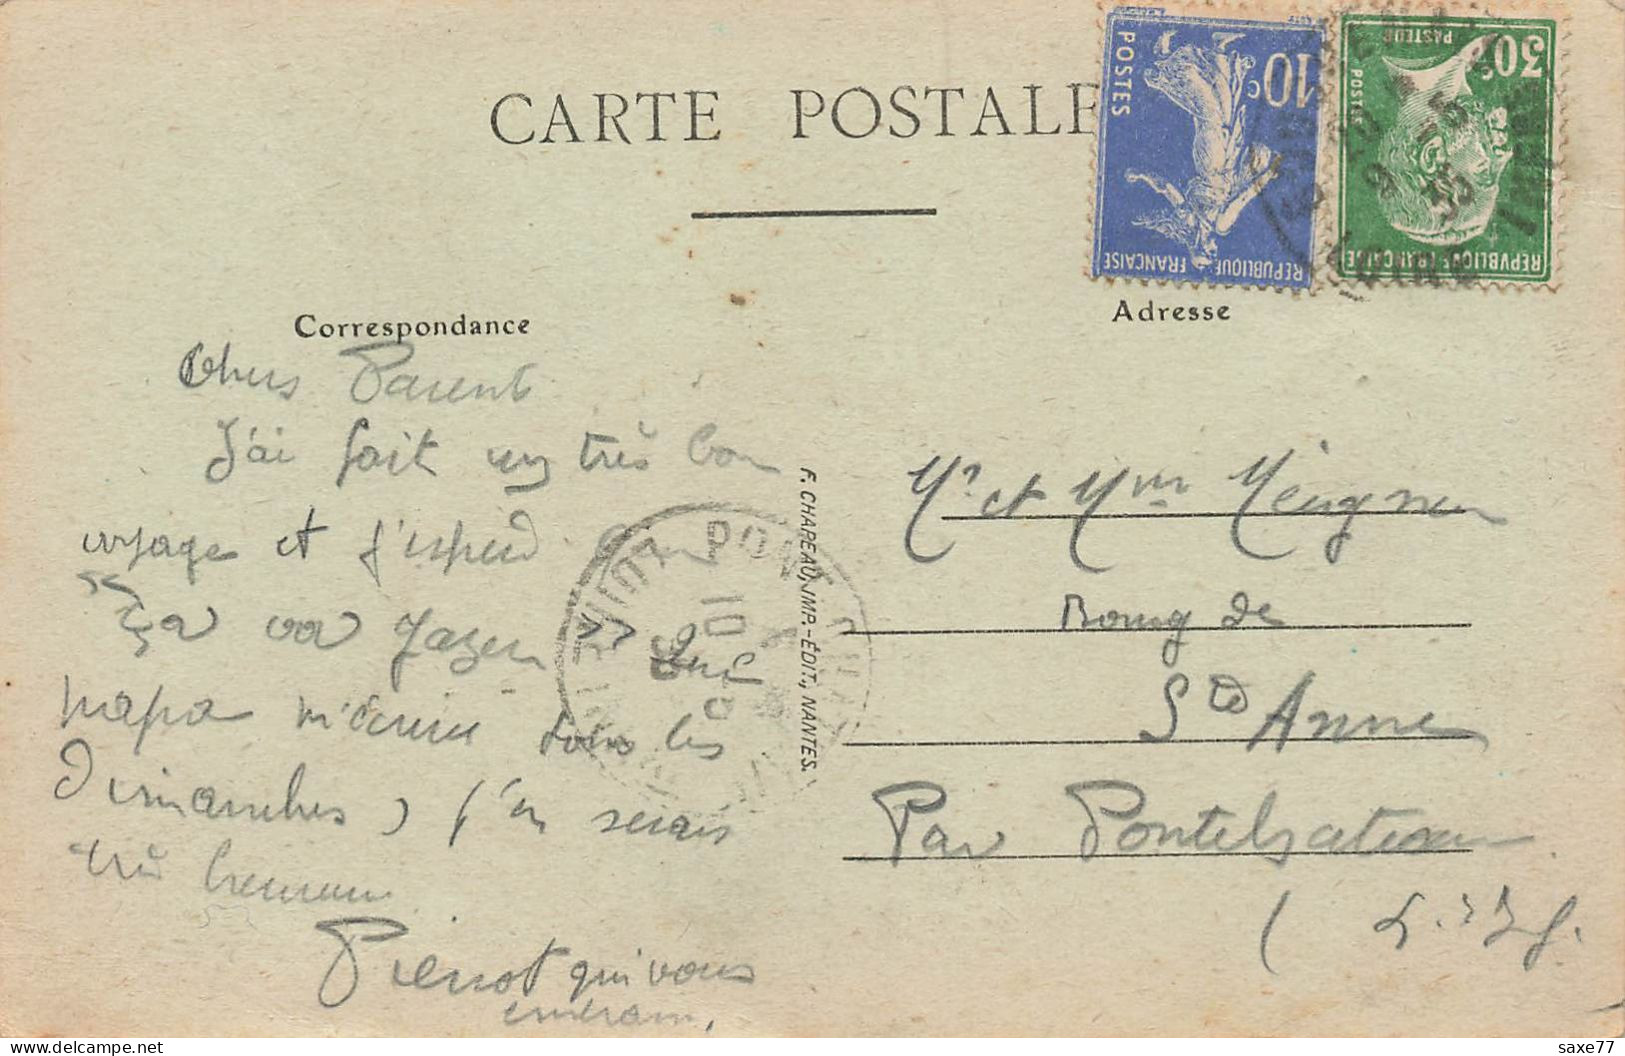 CARTE POSTALE
POSTES
10c
REPUBLIQUE FRANÇAISE
30c
PASTEUR
POSTES
REPVBLIQVE FRANÇAISE
Correspondance
Adresse
Chers Parent
J'ai fait un très bon
voyage et j'espère
ça va Gazer Que
papa m'écrive tous les
Dimanches, j'en serais
très heureux
Pierrot qui vous
embrasse,
F. CHAPEAU, IMP.-ÉDIT., NANTES.
Mr et Mme
Bourg de
Ste Anne
Par Pontchateau
( L. Inf.
saxe77